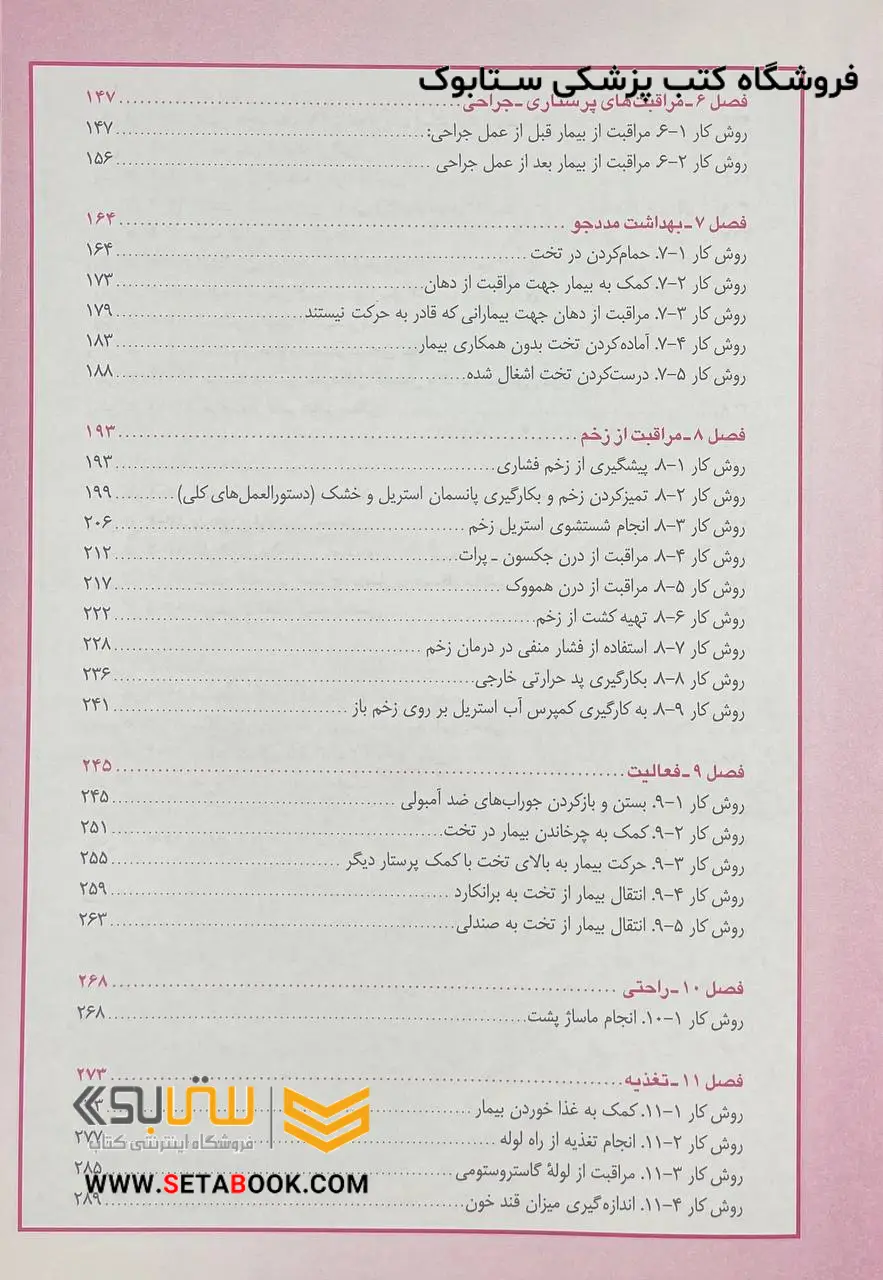 فروشگاه کتب پزشکی ستابوک
فصل ۶ـ مراقبت‌های پرستاری ـ جراحی ........ ۱۴۷
روش کار ۱-۶. مراقبت از بیمار قبل از عمل جراحی: ........ ۱۴۷
روش کار ۲-۶. مراقبت از بیمار بعد از عمل جراحی ........ ۱۵۶
فصل ۷ـ بهداشت مددجو ........ ۱۶۴
روش کار ۱-۷. حمام‌کردن در تخت ........ ۱۶۴
روش کار ۲-۷. کمک به بیمار جهت مراقبت از دهان ........ ۱۷۳
روش کار ۳-۷. مراقبت از دهان جهت بیمارانی که قادر به حرکت نیستند ........ ۱۷۹
روش کار ۴-۷. آماده‌کردن تخت بدون همکاری بیمار ........ ۱۸۳
روش کار ۵-۷. درست‌کردن تخت اشغال شده ........ ۱۸۸
فصل ۸ـ مراقبت از زخم ........ ۱۹۳
روش کار ۱-۸. پیشگیری از زخم فشاری ........ ۱۹۳
روش کار ۲-۸. تمیزکردن زخم و بکارگیری پانسمان استریل و خشک (دستورالعمل‌های کلی) ........ ۱۹۹
روش کار ۳-۸. انجام شستشوی استریل زخم ........ ۲۰۶
روش کار ۴-۸. مراقبت از درن جکسون ـ پرات ........ ۲۱۲
روش کار ۵-۸. مراقبت از درن همووک ........ ۲۱۷
روش کار ۶-۸. تهیه کشت از زخم ........ ۲۲۲
روش کار ۷-۸. استفاده از فشار منفی در درمان زخم ........ ۲۲۸
روش کار ۸-۸. بکارگیری پد حرارتی خارجی ........ ۲۳۶
روش کار ۹-۸. به کارگیری کمپرس آب استریل بر روی زخم باز ........ ۲۴۱
فصل ۹ـ فعالیت ........ ۲۴۵
روش کار ۱-۹. بستن و بازکردن جوراب‌های ضد آمبولی ........ ۲۴۵
روش کار ۲-۹. کمک به چرخاندن بیمار در تخت ........ ۲۵۱
روش کار ۳-۹. حرکت بیمار به بالای تخت با کمک پرستار دیگر ........ ۲۵۵
روش کار ۴-۹. انتقال بیمار از تخت به برانکارد ........ ۲۵۹
روش کار ۵-۹. انتقال بیمار از تخت به صندلی ........ ۲۶۳
فصل ۱۰ـ راحتی ........ ۲۶۸
روش کار ۱-۱۰. انجام ماساژ پشت ........ ۲۶۸
فصل ۱۱ـ تغذیه ........ ۲۷۳
روش کار ۱-۱۱. کمک به غذا خوردن بیمار ........
روش کار ۲-۱۱. انجام تغذیه از راه لوله ........ ۲۷۷
روش کار ۳-۱۱. مراقبت از لولهٔ گاستروستومی ........ ۲۸۵
روش کار ۴-۱۱. اندازه‌گیری میزان قند خون ........ ۲۸۹
ستابوک
فروشگاه اینترنتی کتاب
WWW.SETABOOK.COM